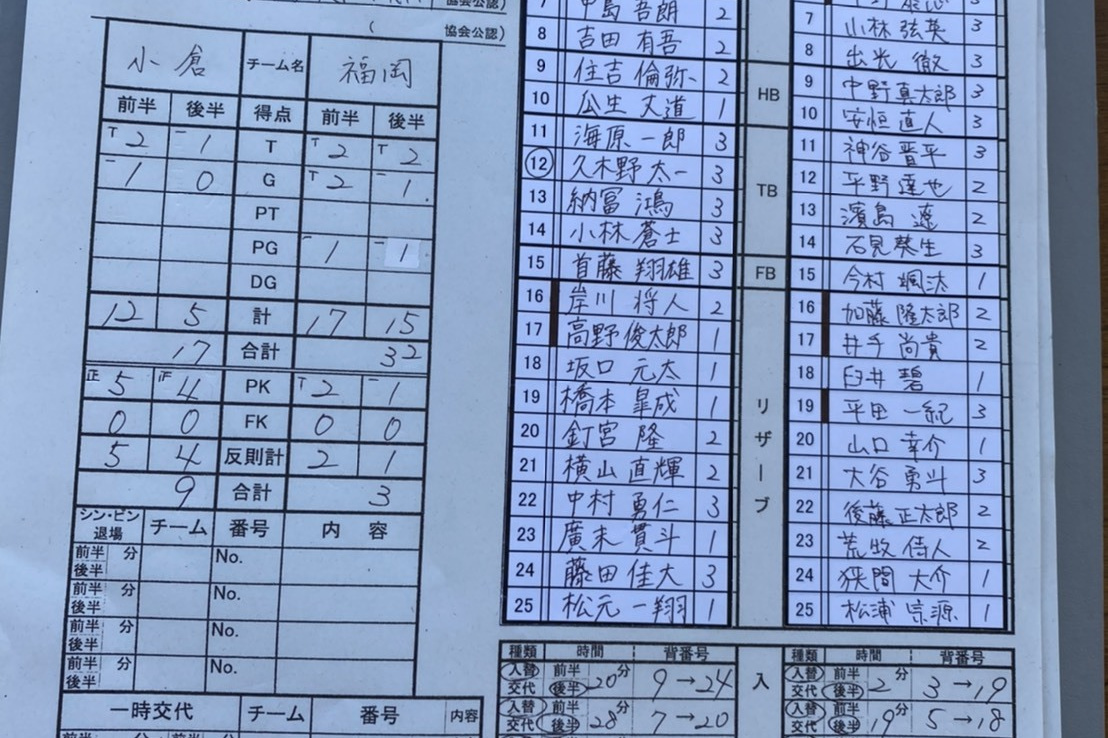 協会公認)
( 協会公認)
小倉 チーム名 福岡
前半 後半 得点 前半 後半
T 2 一 1 T T 2 T 2
一 1 0 G T 2 一 1
PT
PG 一 1 一 1
DG
12 5 計 17 15
17 合計 32
正 5 4 PK T 2 一 1
0 0 FK 0 0
5 4 反則計 2 1
9 合計 3
シン・ビン 退場 チーム 番号 内容
前半 後半 分 No.
前半 後半 分 No.
前半 後半 分 No.
前半 後半 分 No.
一時交代 チーム 番号 内容
7 中島 吾朗 2
8 吉田 有吾 2
9 住吉 倫弥 2
10 公生 丈道 1
11 海原 一郎 3
12 久木野 太一 3
13 納冨 鴻 3
14 小林 蒼士 3
15 首藤 翔雄 3
16 岸川 将人 2
17 高野 俊太郎 1
18 坂口 元太 1
19 橋本 皐成 1
20 釘宮 隆 2
21 横山 直輝 2
22 中村 勇仁 3
23 廣末 貫斗 1
24 藤田 佳大 3
25 松元 一翔 1
HB
TB
FB
リザーブ
7 小林 弦英 3
8 出光 徹 3
9 中野 真太郎 3
10 安恒 直人 3
11 神谷 晋平 3
12 平野 達也 2
13 濱島 遼 2
14 石見 葵生 3
15 今村 颯汰 1
16 加藤 隆太郎 2
17 井手 尚貴 2
18 臼井 碧 1
19 平田 一紀 3
20 山口 幸介 1
21 大谷 勇斗 3
22 後藤 正太郎 2
23 荒牧 侑人 2
24 狭間 大介 1
25 松浦 宗源 1
種類 時間 背番号
入替 交代 前半 後半 20分 9→24
入替 交代 前半 後半 28分 7→20
入
種類 時間 背番号
入替 交代 前半 後半 2分 3→19
入替 交代 前半 後半 19分 5→18